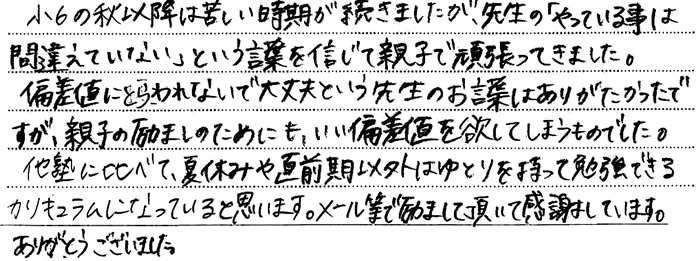 小6の秋以降は苦しい時期が続きましたが、先生の「やっている事は
間違えていない」という言葉を信じて親子で頑張ってきました。
偏差値にとらわれないで大丈夫という先生のお言葉はありがたかったで
すが、親子の励ましのためにも、いい偏差値を欲してしまうものでした。
他塾に比べて、夏休みや直前期以外はゆとりを持って勉強できる
カリキュラムになっていると思います。メール等で励まして頂いて感謝しています。
ありがとうございました。